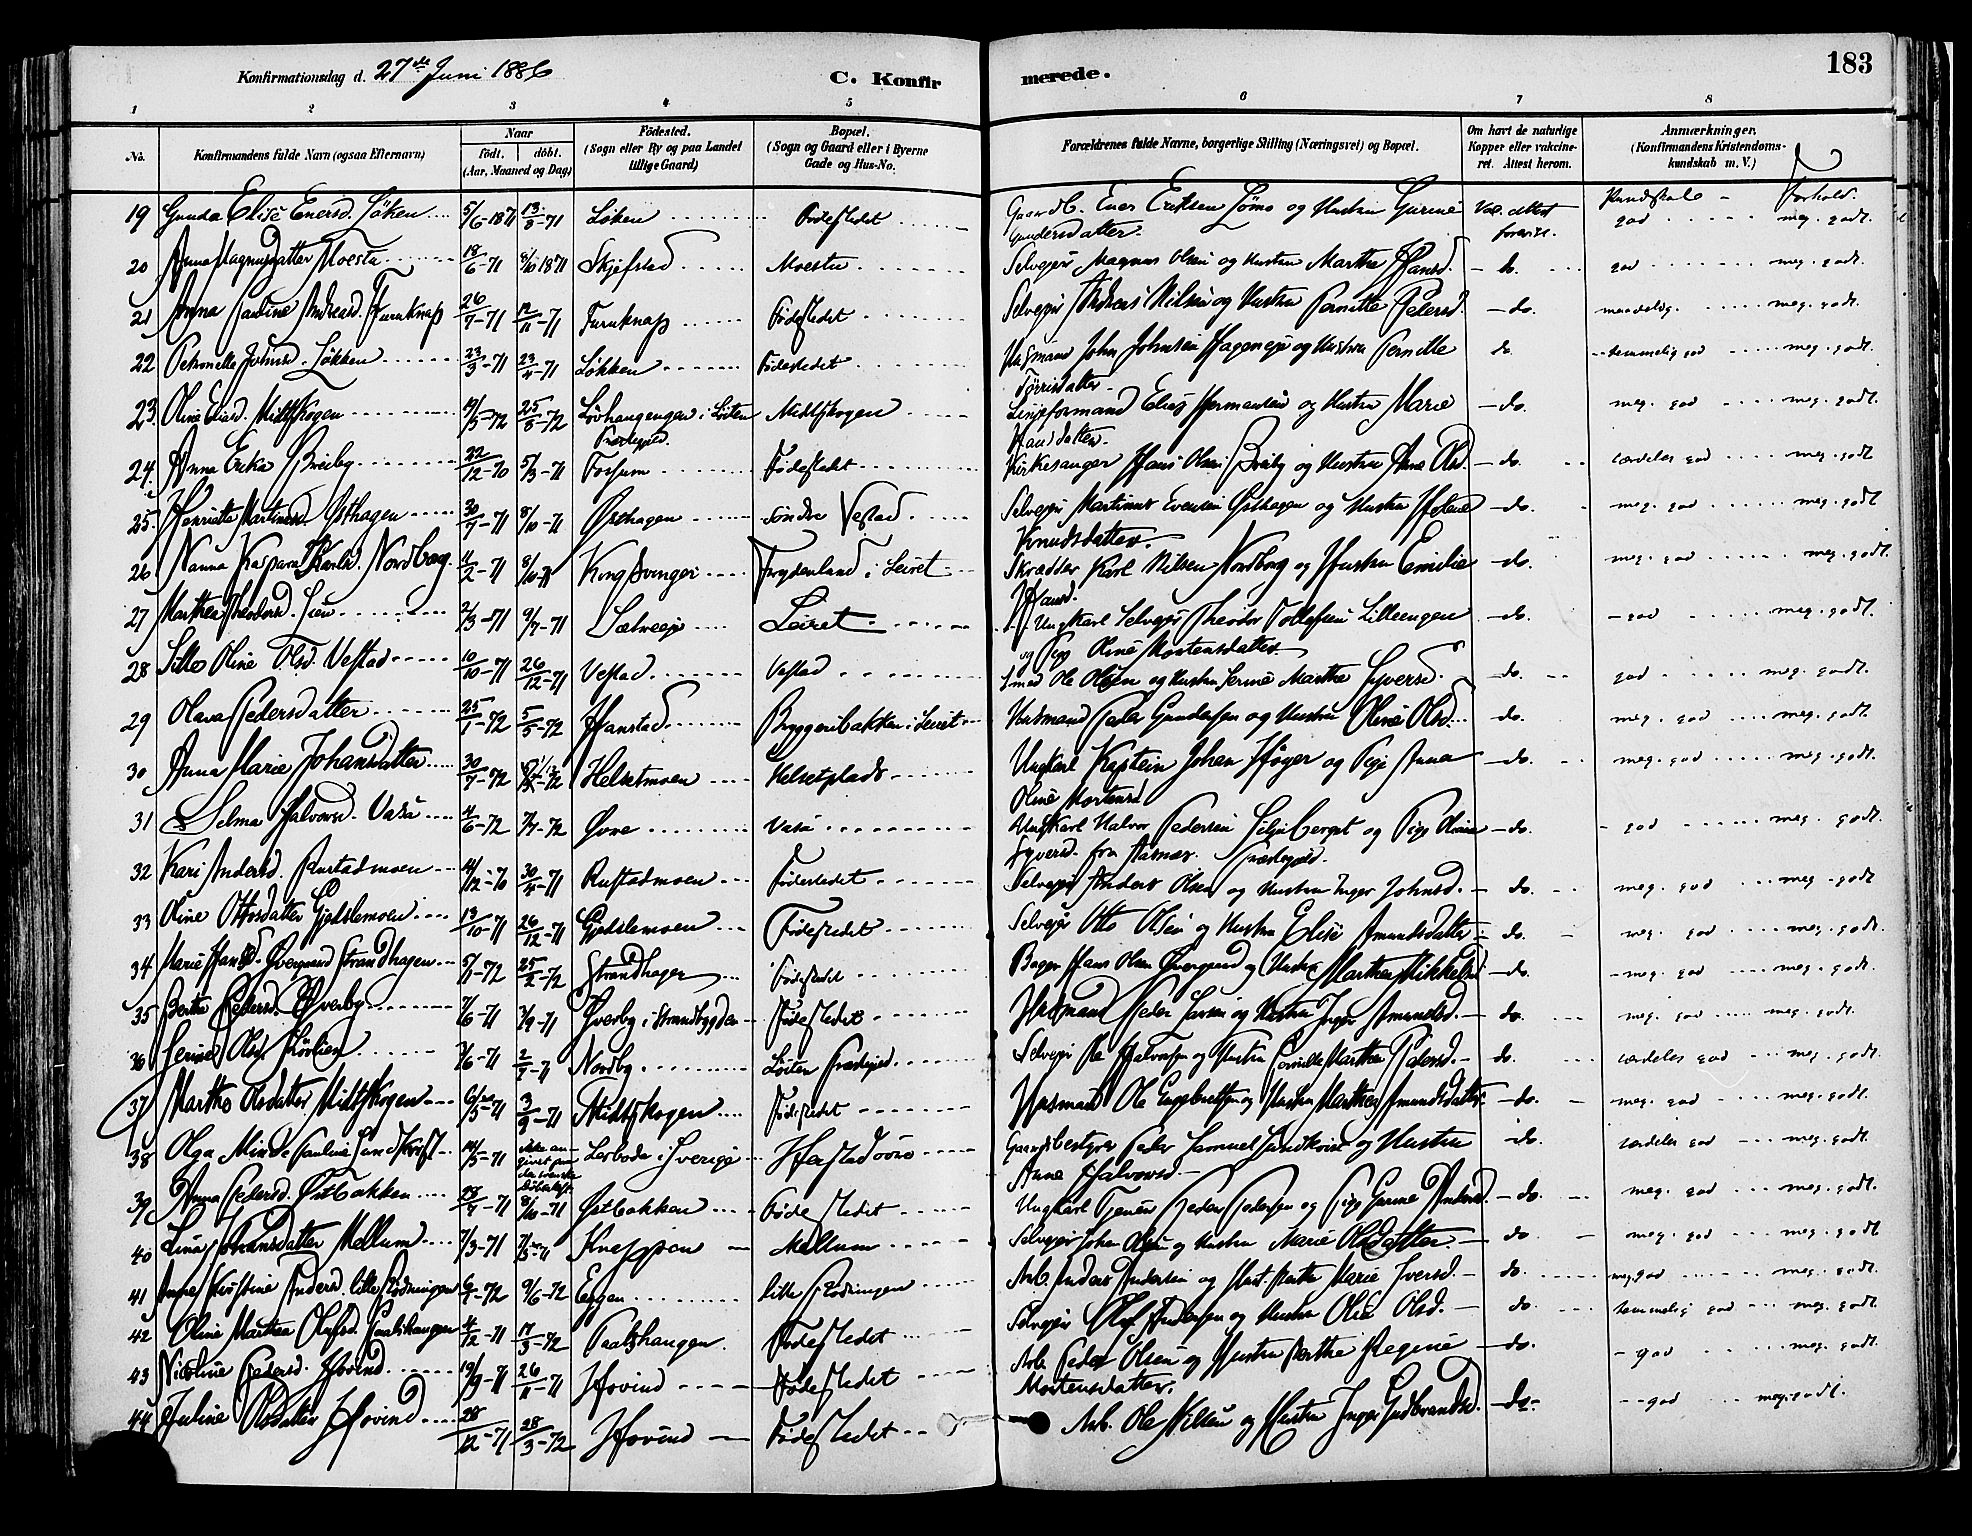 183
Konfirmationsdag d. 27de Juni 1886 C. Konfirmerede.
1 2 3 4 5 6 7 8
No. Konfirmandens fulde Navn (ogsaa Efternavn) Naar födt. döbt. (Aar, Maaned og Dag) Födested. (Sogn eller By og paa Landet tillige Gaard) Bopæl. (Sogn og Gaard eller i Byerne Gade og Hus-No. Forældrenes fulde Navne, borgerlige Stilling (Næringsvei) og Bopæl. Om havt de naturlige Kopper eller vaccineret. Attest herom. Anmærkninger. (Konfirmandens Kristendomskundskab m. V.)
Kundskab - Forhold.
19 Gunda Elise Enersd. Löken 5/6-1871 13/8-71 Löken Födestedet Gaardb. Ener Eriksen Löms og Hustru Gurine Vac. attest god meg. godt.
Gundersdatter. forevist.
20 Anna Magnusdatter Moestu 18/6-71 8/10 1871 Skjefstad Moestu Selveier Magnus Olsen og Hustru Marthe Hansd. - do. god meg. godt.
21 Anna Pauline Andreasd. Furuknap 26/7-71 12/11-71 Furuknap Födestedet Selveier Andreas Nilsen og Hustru Pernille Pedersd. - do. maadelig meg. godt.
22 Petronelle Johnsd. Løkken 23/3-71 23/4-71 Løkken Födestedet Husmand John Johnsen Hageneje og Hustru Pernille do. temmelig god meg. godt.
Törrisdatter.
23. Oline Eliasd. Midtskogen 19/5-72 25/8-72 Lövhaugengen i Löiten Midtskogen Linjeformand Elias Hermansen og Hustru Marie - do. meg. god meg. godt.
Præstegjed. Hansdatter.
24. Anna Erika Breiby 22/12-70 5/3-71 Fossum Födestedet Kirkesanger Hans Olsen Breiby og Hustru Anne Olsd. - do. særdeles god meg. godt
25. Henriette Martinusd. Østhagen 30/7-71 8/10-71 Østhagen Söndre Vestad Selveier Martinus Evensen Østhagen og Hustru Helene - do. meg. god meg. godt.
Knudsdatter.
26. Nanna Kaspara Karlsd. Nordborg 11/2-71 8/10-71 Kongsvinger Frydenlund i Leiret Skrædder Karl Nilsen Nordborg og Hustru Emilie - do. meg. god meg. godt.
Hansd.
27 Marthea Theodorsd. Lien 2/3-71 9/7-71 Sætreeje Leiret Ungkarl Selveier Theodor Tollefsen Lilleengen - do. god meg. godt.
og Pige Oline Mortensdatter
28 Sille Oline Olsd. Vestad 10/10-71 26/12-71 Vestad Vestad Smed Ole Olsen og Hustru Serine Marthe Syversd. - do. god meg. godt.
29 Olava Pedersdatter 25/1-72 5/5-72 Hanstad Bryggeribakken i Leiret Husmand Peder Gundersen og Hustru Oline Olsd. - do. meg. god meg. godt.
30 Anna Marie Johansdatter 30/7-72 Helsetmoen Helsetplads Ungkarl Kaptein Johan Höyer og Pige Anne - do. meg. god meg. godt.
Oline Mortensd
31 Selma Halvorsd. Vasa 4/6-72 7/7-72 Øvre Vasa Ungkarl Halvor Pedersen Siljuberget og Pige Oline - do. god meg. godt.
Syversd. fra Aasnæs Præstegjed.
32 Kari Andersd. Rustadmoen 14/12-70 30/4-71 Rustadmoen Födestedet Selveier Anders Olsen og Hustru Inger Johnsd. - do. meg. god meg. godt
33 Oline Ottosdatter Gjedslemoen 13/10-71 26/12-71 Gjedslemoen Födestedet Selveier Otto Olsen og Hustru Elise Amundsdatter - do. meg. god meg. godt.
34 Marie Hansd. Övergaard Strandhagen 5/1-72 25/2-72 Strandhagen Födestedet Bager Hans Olsen Övergaard og Hustru Marthea Mikkelsd - do. meg. god meg. godt.
35 Berthe Pedersd. Øverby 7/6-71 3/9-71 Øverby i Strandbygden Födestedet Husmand Peder Larsen og Hustru Inger Amundsd. - do. meg. god meg. godt.
36 Serine Olsd. 7/6-71 2/7-71 Nordby Löiten Præstegjed. Selveier Ole Halvorsen og Hustru Pernille Marthea Pedersd. - do. særdeles god meg. godt.
37 Marthe Olsdatter Midtskogen 6/5-71 3/9-71 Midtskogen Födestedet Husmand Ole Engebretsen og Hustru Marthea Amundsdatter - do. meg. god meg. godt.
38 Olga Minde Pauline Sandkvist 14/5-71 ikke angivet paa den svenske Döbeattest Lerboda i Sverige Herstad övre Gaardsbestyrer Peder Samuel Sandkvist og Hustru do. særdeles god meg. godt.
Anne Halvorsd.
39 Anna Pedersd. Østbakken 27/7-71 8/10-71 Østbakken Födestedet Ungkarl Tjener Peder Pedersen og Pige Gurine Andersd. - do. meg. god meg. godt.
40 Lina Johansdatter Mellum 7/3-71 7/5-71 Kneppen Mellum Selveier Johan Olsen og Hustru Marie Olsdatter - do. meg. god meg. godt
41 Anne Kristine Andersd. lille Rödningen 6/1-72 9/6-72 Engen lille Rödningen Arb. Anders Andersen og Hust. Marthe Marie Iversd. - do. meg. god meg. godt.
42 Oline Marthea Olafsd. Paalshaugen 4/12-71 17/3-72 Paalshaugen Födestedet Selveier Olaf Andersen og Hustru Olie Olsd. - do. temmelig god meg. godt.
43 Nicoline Pedersd. Hovind 19/9-71 26/11-71 Hovind Födestedet Arb. Peder Olsen og Hustru Berthe Regine - do. - god meg. godt.
Mortensdatter.
44 Juline Olsdatter Hovind 28/12-71 28/3-72 Hovind Födestedet Arb. Ole Nilsen og Hustru Inger Gudbrandsd. - do - god meg. godt.